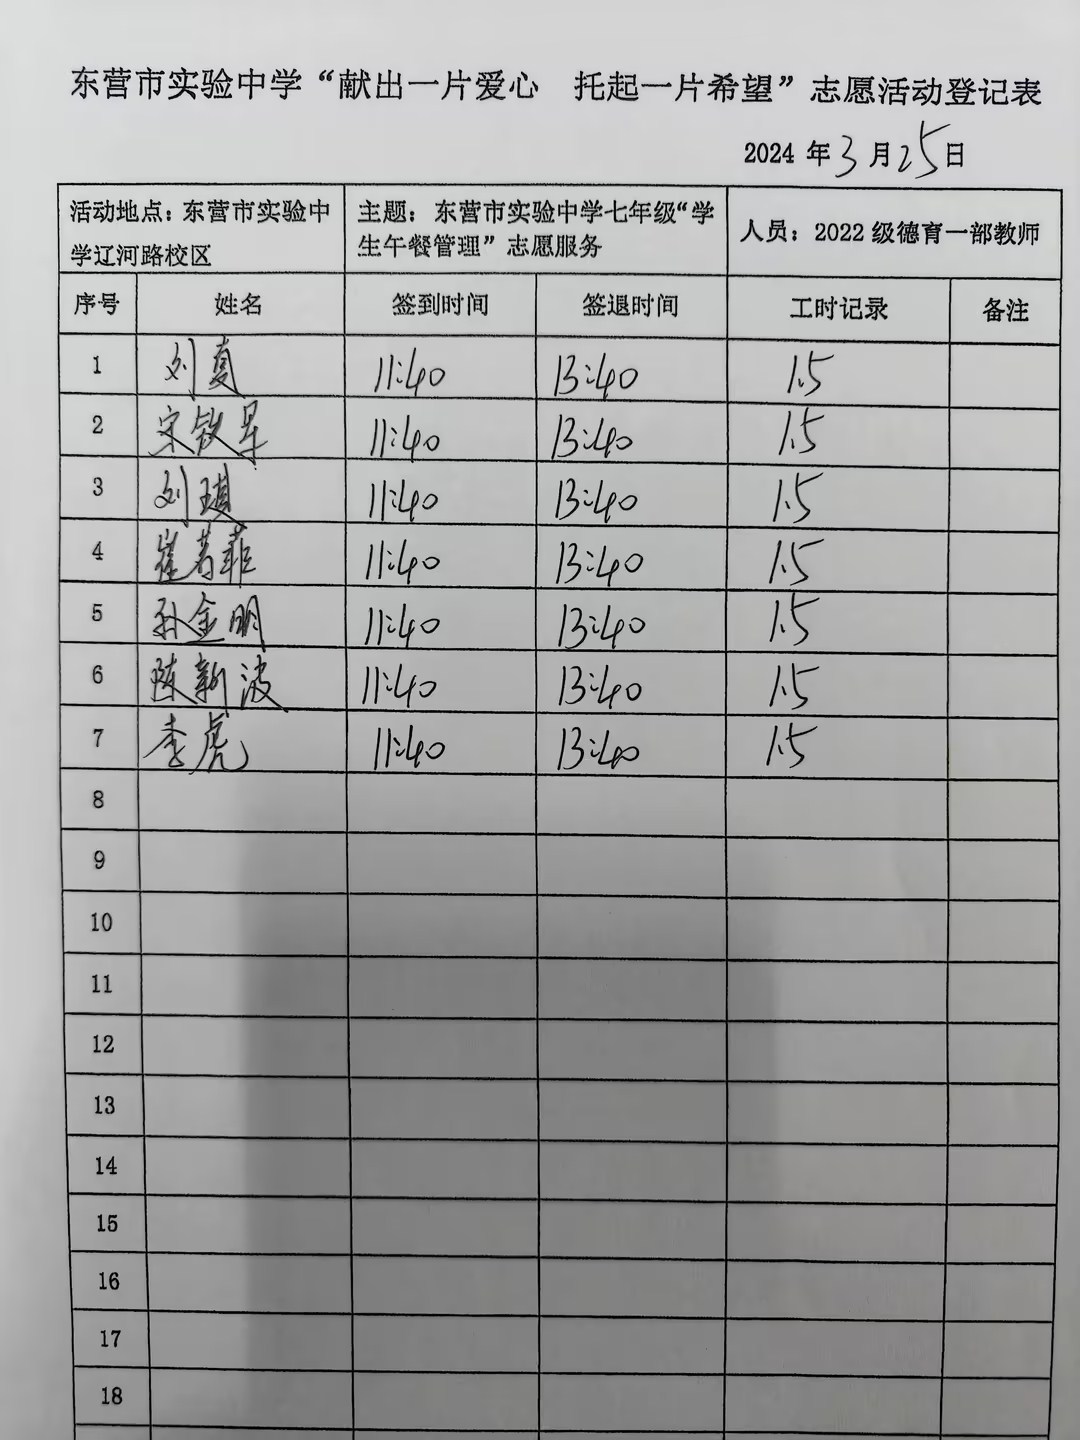 东营市实验中学“献出一片爱心 托起一片希望”志愿活动登记表
2024 年 3 月 25 日
活动地点：东营市实验中学辽河路校区 主题：东营市实验中学七年级“学生午餐管理”志愿服务 人员：2022 级德育一部教师
序号 姓名 签到时间 签退时间 工时记录 备注
1 刘夏 11:40 13:40 1.5
2 宋钦星 11:40 13:40 1.5
3 刘琪 11:40 13:40 1.5
4 崔若菲 11:40 13:40 1.5
5 孙金明 11:40 13:40 1.5
6 陈新波 11:40 13:40 1.5
7 李虎 11:40 13:40 1.5
8
9
10
11
12
13
14
15
16
17
18